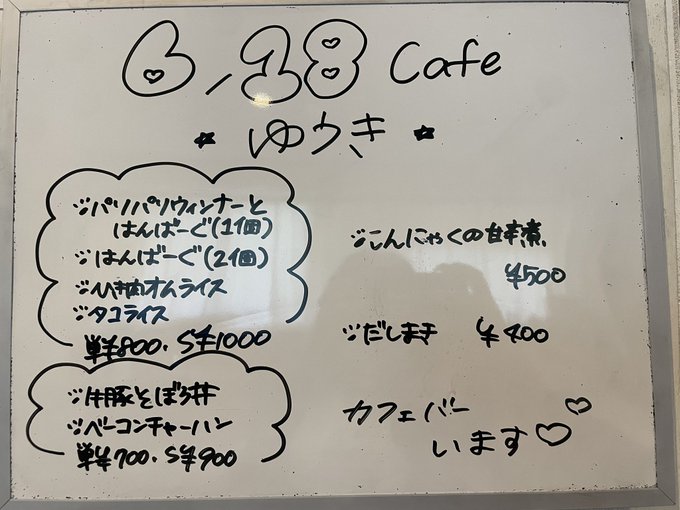 6/18 Cafe
☆ ゆうき ☆
※パリパリウィンナーと
はんばーぐ(1個)
※はんばーぐ(2個)
※ひき肉オムライス
※タコライス
単¥800. S¥1000
※牛豚そぼろ丼
※ベーコンチャーハン
単¥700. S¥900
※こんにゃくの甘辛煮
¥500
※だしまき ¥400
カフェバー
います♡♡